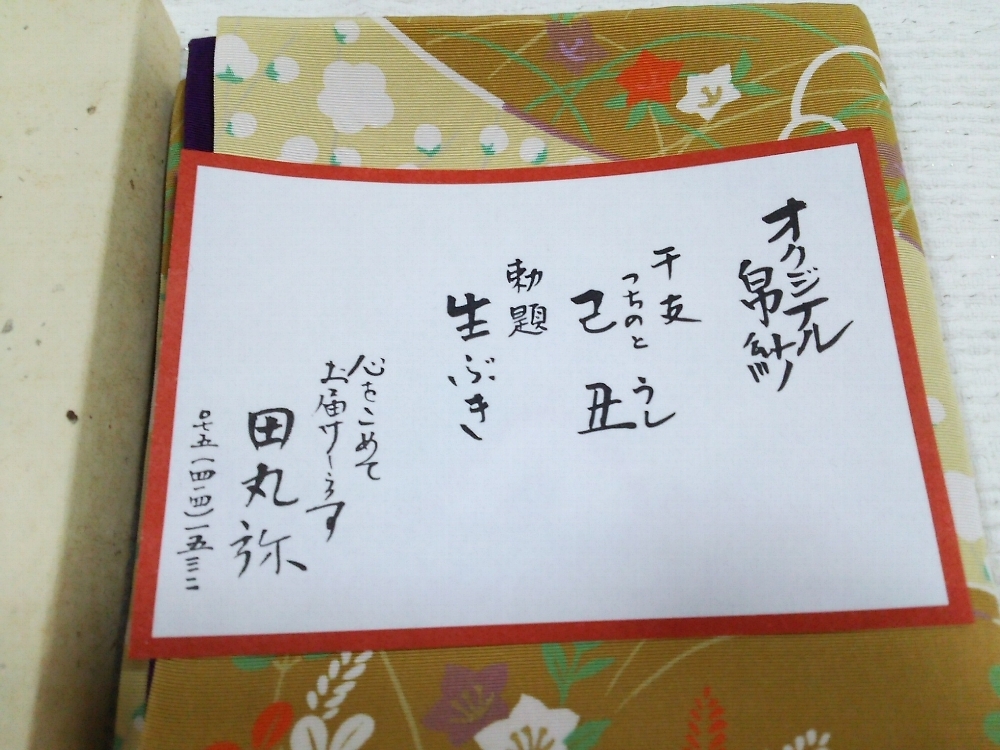 オリジナル
帛紗
干支
つちのと うし
己 丑
勅題
生ぶき
心をこめて
お届けします
田丸弥
〇七五(四一四)一五三二